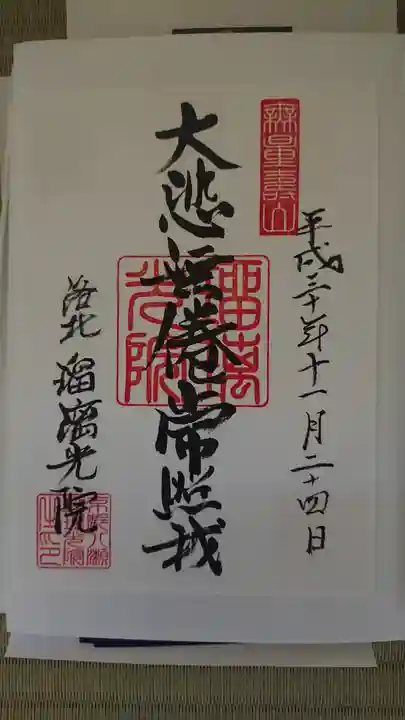 無量壽山
平成三十年十一月二十四日
大悲無倦常照我
洛北 瑠璃光院